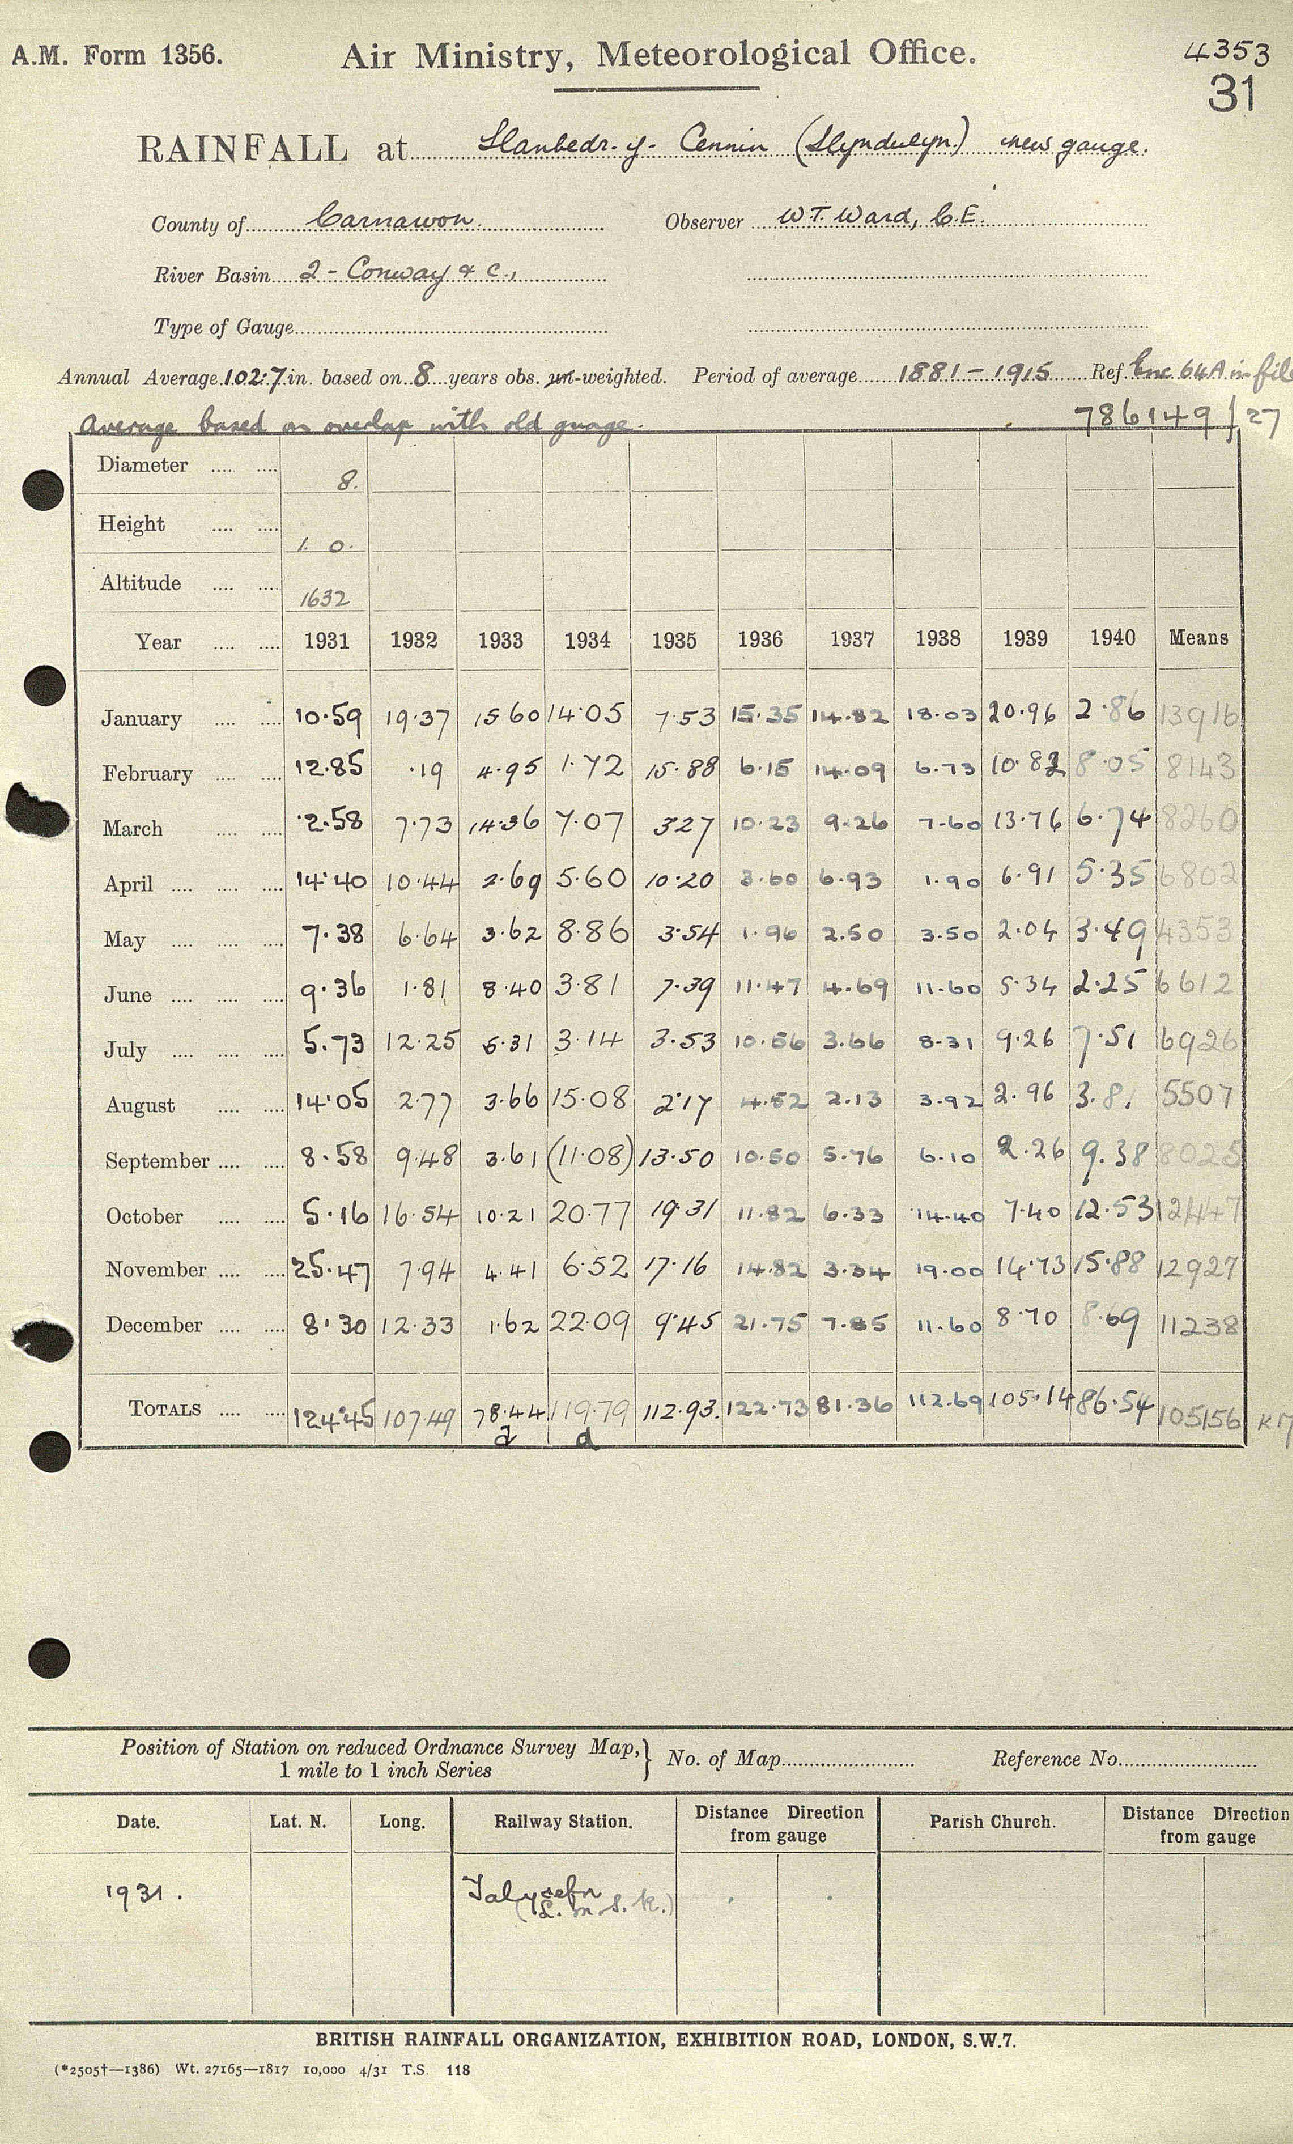 A.M. Form 1356. Air Ministry, Meteorological Office. 4353
31
RAINFALL at Llanbedr-y-Cennin (Llyndulyn) new gauge.
County of Carnarvon. Observer W.T. Ward, C.E.
River Basin 2 - Conway & c.,
Type of Gauge
Annual Average 102.7 in. based on 8 years obs. un-weighted. Period of average 1881-1915 Ref Enc 64A in file
Average based on overlap with old guage. 786149/27
Diameter 8.
Height 1. 0.
Altitude 1632
Year 1931 1932 1933 1934 1935 1936 1937 1938 1939 1940 Means
January 10.59 19.37 15.60 14.05 7.53 15.35 14.82 18.03 20.96 2.86 13916
February 12.85 .19 4.95 1.72 15.88 6.15 14.09 6.73 10.82 8.05 8143
March 2.58 7.73 14.36 7.07 3.27 10.23 9.26 7.60 13.76 6.74 8260
April 14.40 10.44 2.69 5.60 10.20 3.60 6.93 1.90 6.91 5.35 6802
May 7.38 6.64 3.62 8.86 3.54 1.96 2.50 3.50 2.04 3.49 4353
June 9.36 1.81 8.40 3.81 7.39 11.47 4.69 11.60 5.34 2.25 6612
July 5.73 12.25 5.31 3.14 3.53 10.56 3.66 8.31 9.26 7.51 6926
August 14.05 2.77 3.66 15.08 2.17 4.52 2.13 3.92 2.96 3.81 5507
September 8.58 9.48 3.61 (11.08) 13.50 10.50 5.76 6.10 2.26 9.38 8025
October 5.16 16.54 10.21 20.77 19.31 11.82 6.33 14.40 7.40 12.53 12447
November 25.47 7.94 4.41 6.52 17.16 14.82 3.34 19.00 14.73 15.88 12927
December 8.30 12.33 1.62 22.09 9.45 21.75 7.85 11.60 8.70 8.69 11238
TOTALS 124.45 107.49 78.44 119.79 112.93. 122.73 81.36 112.69 105.14 86.54 105156
a a
Position of Station on reduced Ordnance Survey Map, } No. of Map Reference No.
1 mile to 1 inch Series
Date. Lat. N. Long. Railway Station. Distance Direction Parish Church. Distance Direction
from gauge from gauge
1931. Talycefn
(L.M.S.R.)
BRITISH RAINFALL ORGANIZATION, EXHIBITION ROAD, LONDON, S.W.7.
(*2505†—1386) Wt. 27165—1817 10,000 4/31 T.S. 118